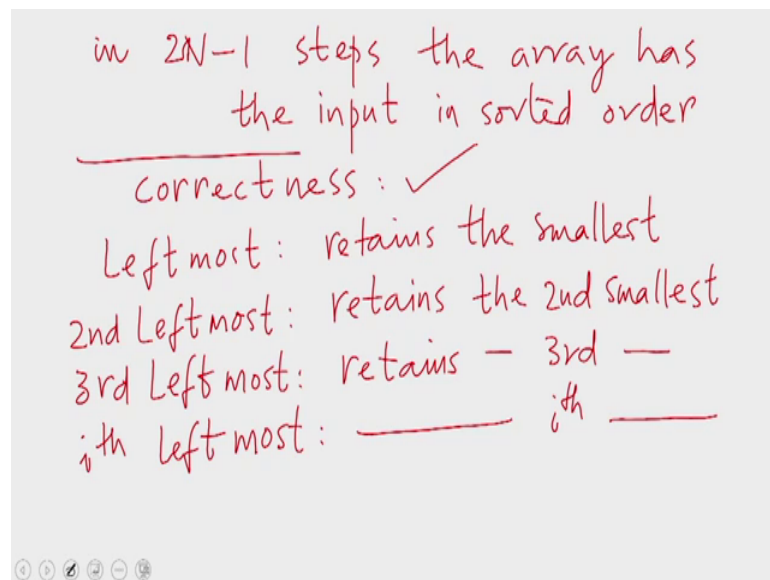 in 2N-1 steps the array has
the input in sorted order
correctness: ✓
Leftmost: retains the smallest
2nd Leftmost: retains the 2nd smallest
3rd Leftmost: retains — 3rd —
ith leftmost: — ith —